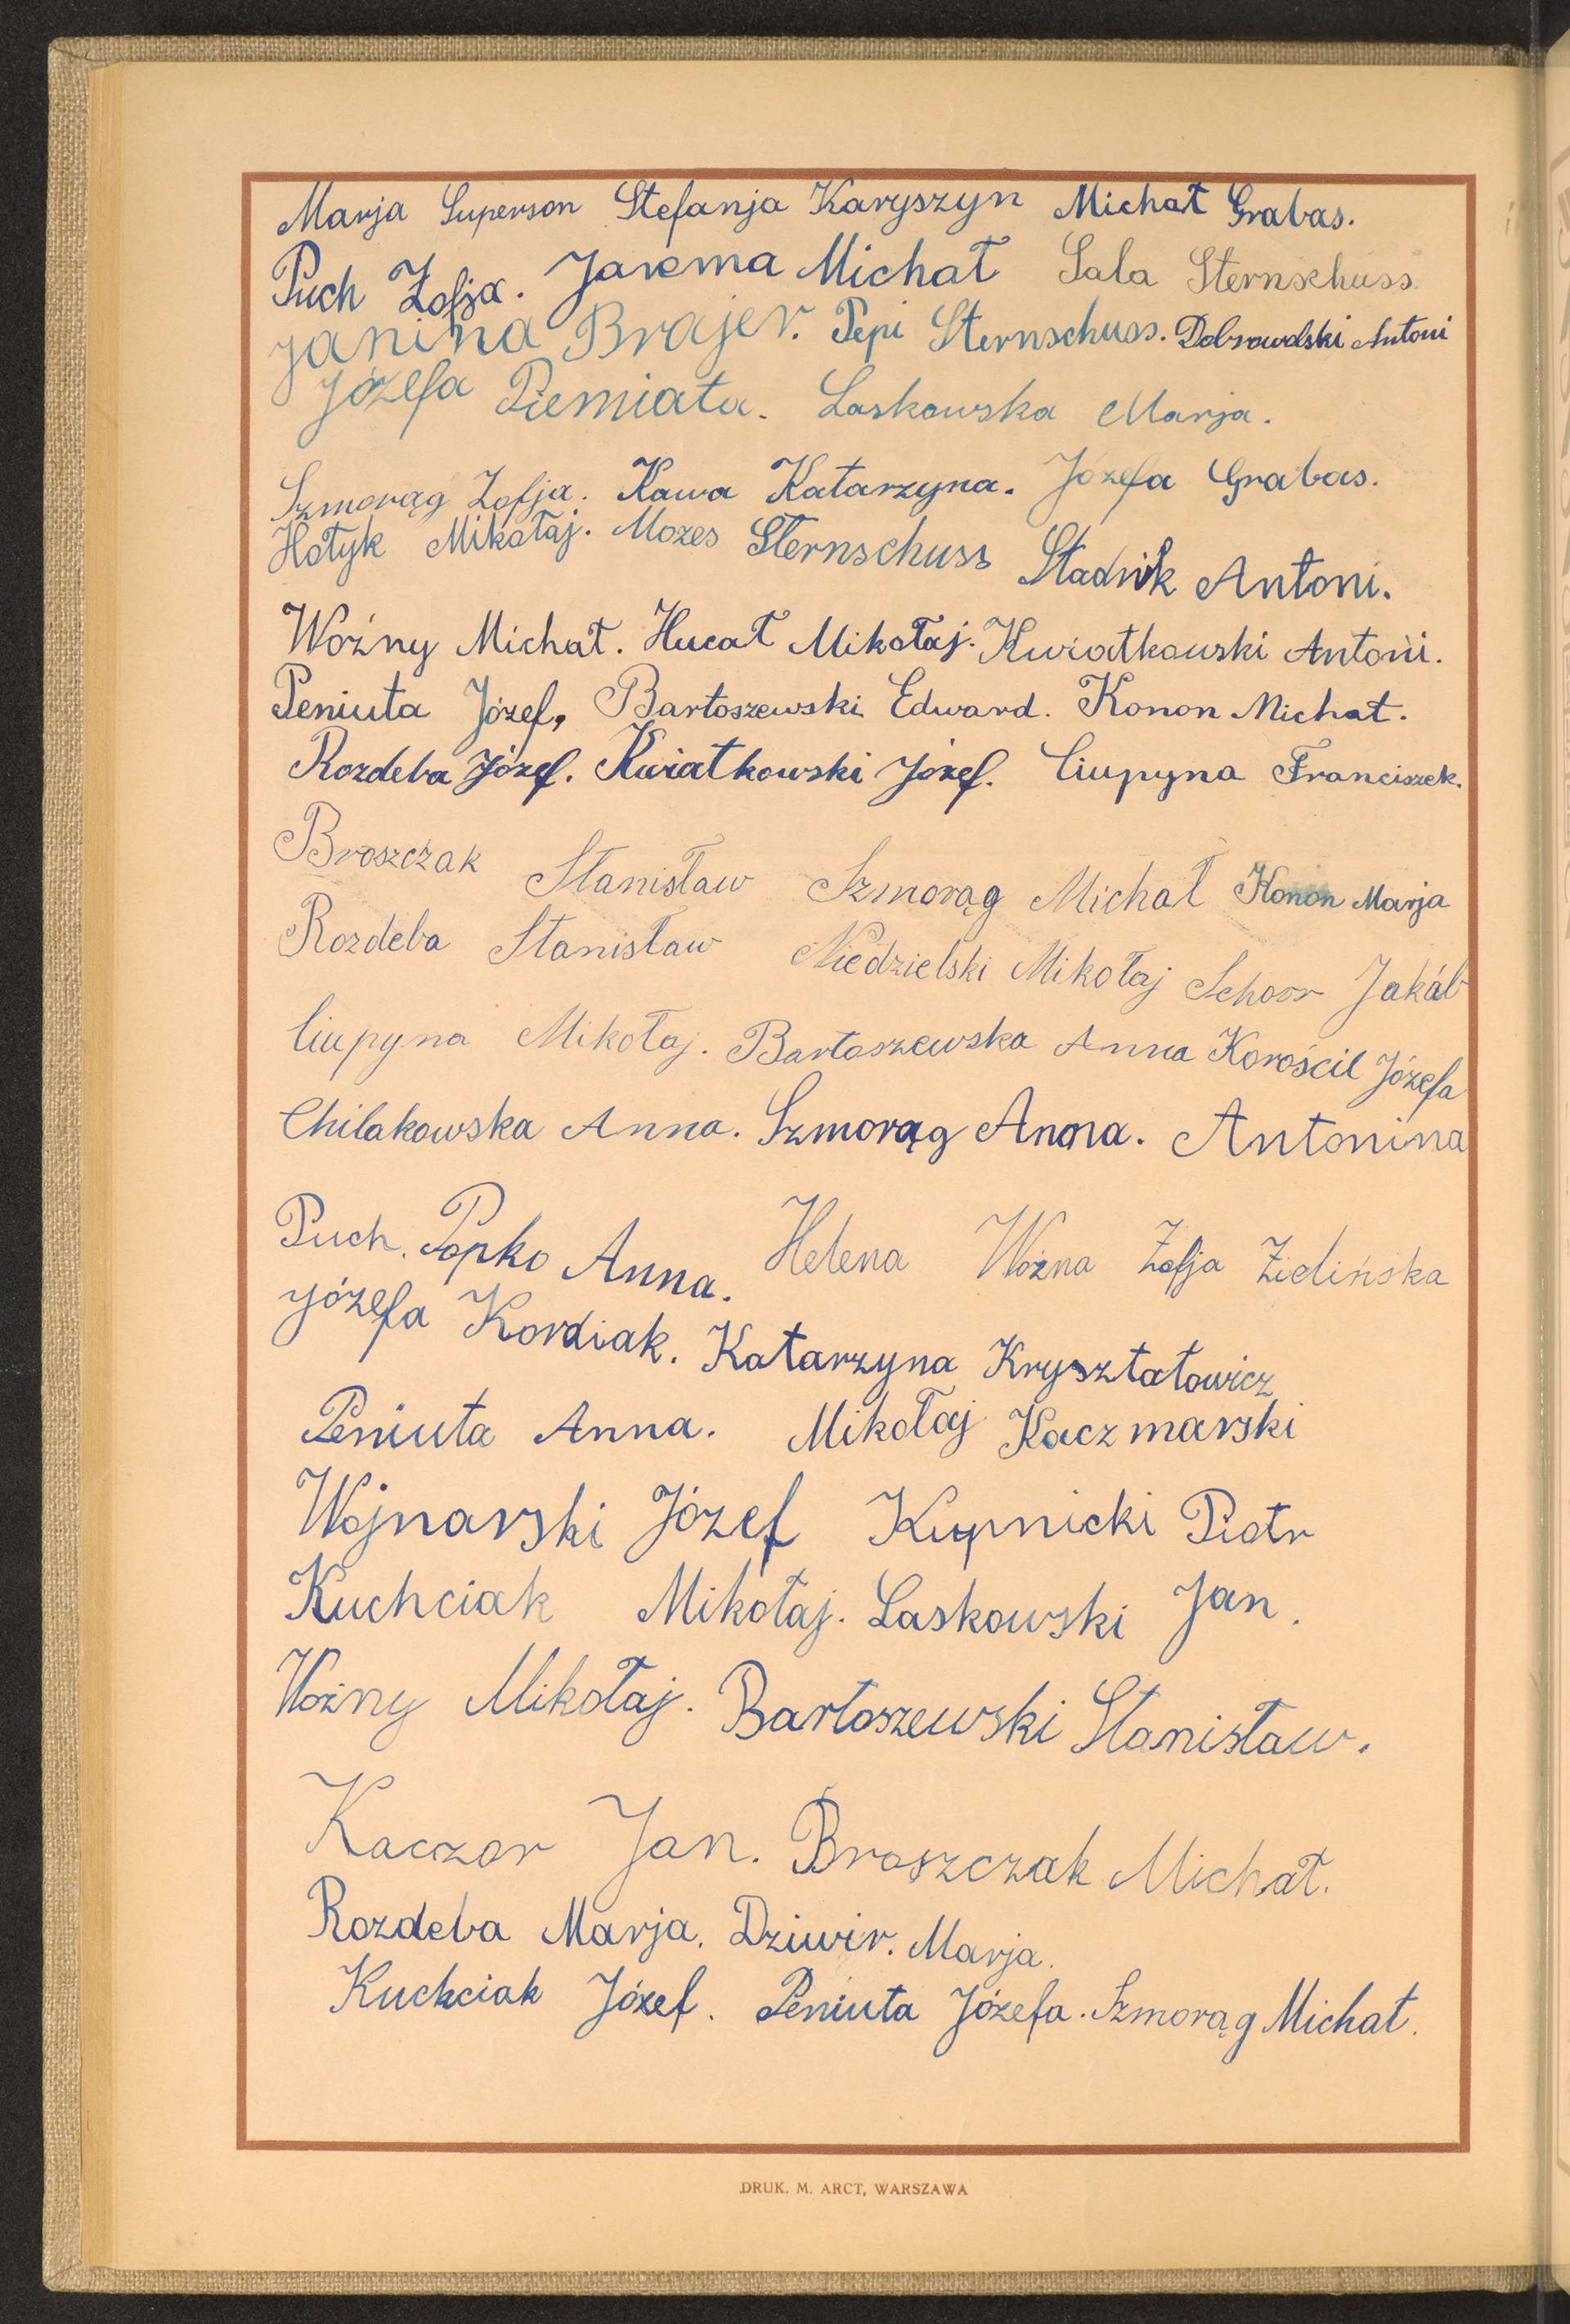 Marja Superson Stefanja Karyszyn Michał Grabas.
Puch Zofja. Jarema Michał Sala Sternschuss.
Janina Brajer. Pepi Sternschuss. Dobrowolski Antoni
Józefa Piemiata. Laskowska Marja.
Szmorąg Zofja. Kawa Katarzyna. Józefa Grabas.
Hołyk Mikołaj. Mozes Sternschuss Stadnik Antoni.
Woźny Michał. Hucał Mikołaj. Kwiatkowski Antoni.
Peniuta Józef, Bartoszewski Edward. Konon Michał.
Rozdeba Józef. Kwiatkowski Józef. Ciupyna Franciszek.
Broszczak Stanisław Szmorąg Michał Konon Marja
Rozdeba Stanisław Niedzielski Mikołaj Schorr Jakób
Ciupyna Mikołaj. Bartoszewska Anna Korościl Józefa
Chilakowska Anna. Szmorąg Anna. Antonina
Puch. Popko Anna. Helena Woźna Zofja Zielińska
Józefa Kordiak. Katarzyna Kryształowicz
Peniuta Anna. Mikołaj Kaczmarski
Wojnarski Józef Kupnicki Piotr
Kuchciak Mikołaj. Laskowski Jan.
Woźny Mikołaj. Bartoszewski Stanisław.
Kaczor Jan. Broszczak Michał.
Rozdeba Marja. Dziwir. Marja.
Kuchciak Józef. Peniuta Józefa. Szmorąg Michał.
DRUK. M. ARCT, WARSZAWA